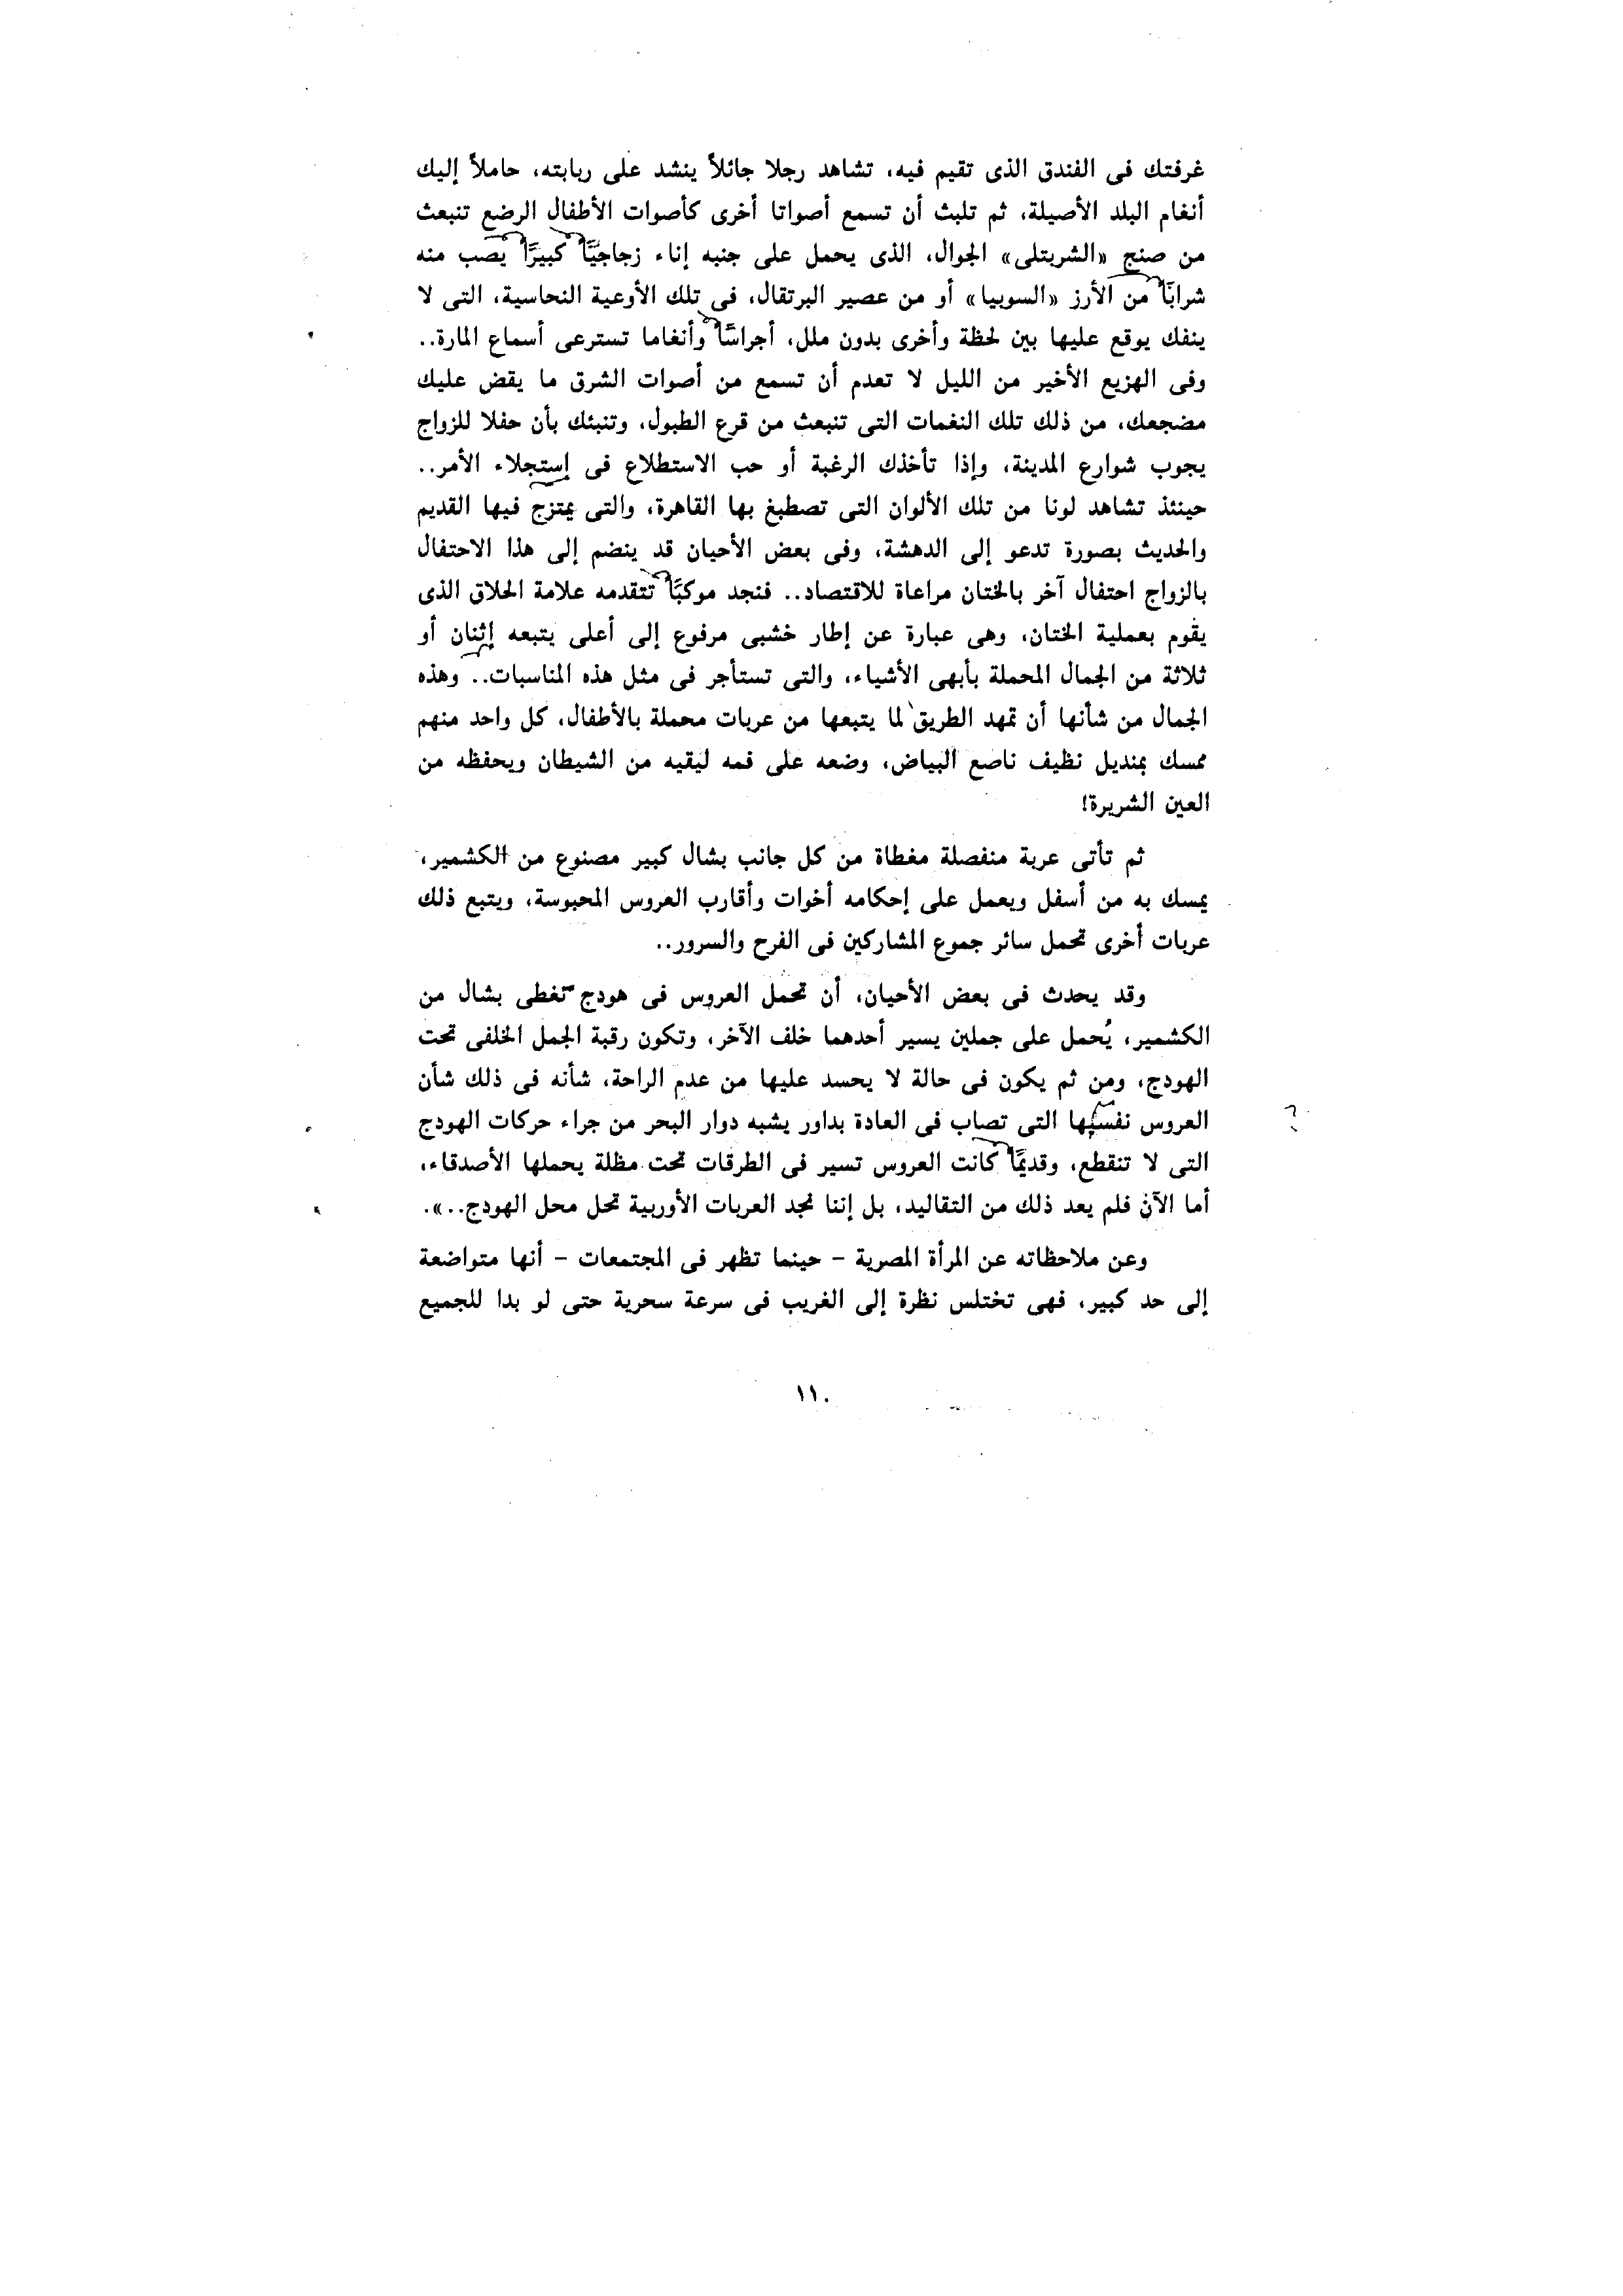 غرفتك فى الفندق الذى تقيم فيه، تشاهد رجلا جائلاً ينشد على ربابته، حاملاً إليك
أنغام البلد الأصيلة، ثم تلبث أن تسمع أصواتا أخرى كأصوات الأطفال الرضع تنبعث
من صنج «الشربتلى» الجوال، الذى يحمل على جنبه إناء زجاجيًا كبيرًا يصب منه
شرابًا من الأرز «السوبيا» أو من عصير البرتقال، فى تلك الأوعية النحاسية، التى لا
ينفك يوقع عليها بين لحظة وأخرى بدون ملل، أجراسًا وأنغاما تسترعى أسماع المارة..
وفى الهزيع الأخير من الليل لا تعدم أن تسمع من أصوات الشرق ما يقض عليك
مضجعك، من ذلك تلك النغمات التى تنبعث من قرع الطبول، وتنبئك بأن حفلا للزواج
يجوب شوارع المدينة، وإذا تأخذك الرغبة أو حب الاستطلاع فى إستجلاء الأمر..
حينئذ تشاهد لونا من تلك الألوان التى تصطبغ بها القاهرة، والتى يمتزج فيها القديم
والحديث بصورة تدعو إلى الدهشة، وفى بعض الأحيان قد ينضم إلى هذا الاحتفال
بالزواج احتفال آخر بالختان مراعاة للاقتصاد.. فنجد موكبًا تتقدمه علامة الحلاق الذى
يقوم بعملية الختان، وهى عبارة عن إطار خشبى مرفوع إلى أعلى يتبعه إثنان أو
ثلاثة من الجمال المحملة بأبهى الأشياء، والتى تستأجر فى مثل هذه المناسبات.. وهذه
الجمال من شأنها أن تمهد الطريق لما يتبعها من عربات محملة بالأطفال، كل واحد منهم
ممسك بمنديل نظيف ناصع البياض، وضعه على فمه ليقيه من الشيطان ويحفظه من
العين الشريرة!
ثم تأتى عربة منفصلة مغطاة من كل جانب بشال كبير مصنوع من الكشمير،
يمسك به من أسفل ويعمل على إحكامه أخوات وأقارب العروس المحبوسة، ويتبع ذلك
عربات أخرى تحمل سائر جموع المشاركين فى الفرح والسرور..
وقد يحدث فى بعض الأحيان، أن تحمل العروس فى هودج تغطى بشال من
الكشمير، يُحمل على جملين يسير أحدهما خلف الآخر، وتكون رقبة الجمل الخلفى تحت
الهودج، ومن ثم يكون فى حالة لا يحسد عليها من عدم الراحة، شأنه فى ذلك شأن
العروس نفسها التى تصاب فى العادة بداور يشبه دوار البحر من جراء حركات الهودج
التى لا تنقطع، وقديمًا كانت العروس تسير فى الطرقات تحت مظلة يحملها الأصدقاء،
أما الآن فلم يعد ذلك من التقاليد، بل إننا نجد العربات الأوربية تحل محل الهودج..».
وعن ملاحظاته عن المرأة المصرية - حينما تظهر فى المجتمعات - أنها متواضعة
إلى حد كبير، فهى تختلس نظرة إلى الغريب فى سرعة سحرية حتى لو بدا للجميع
١١٠